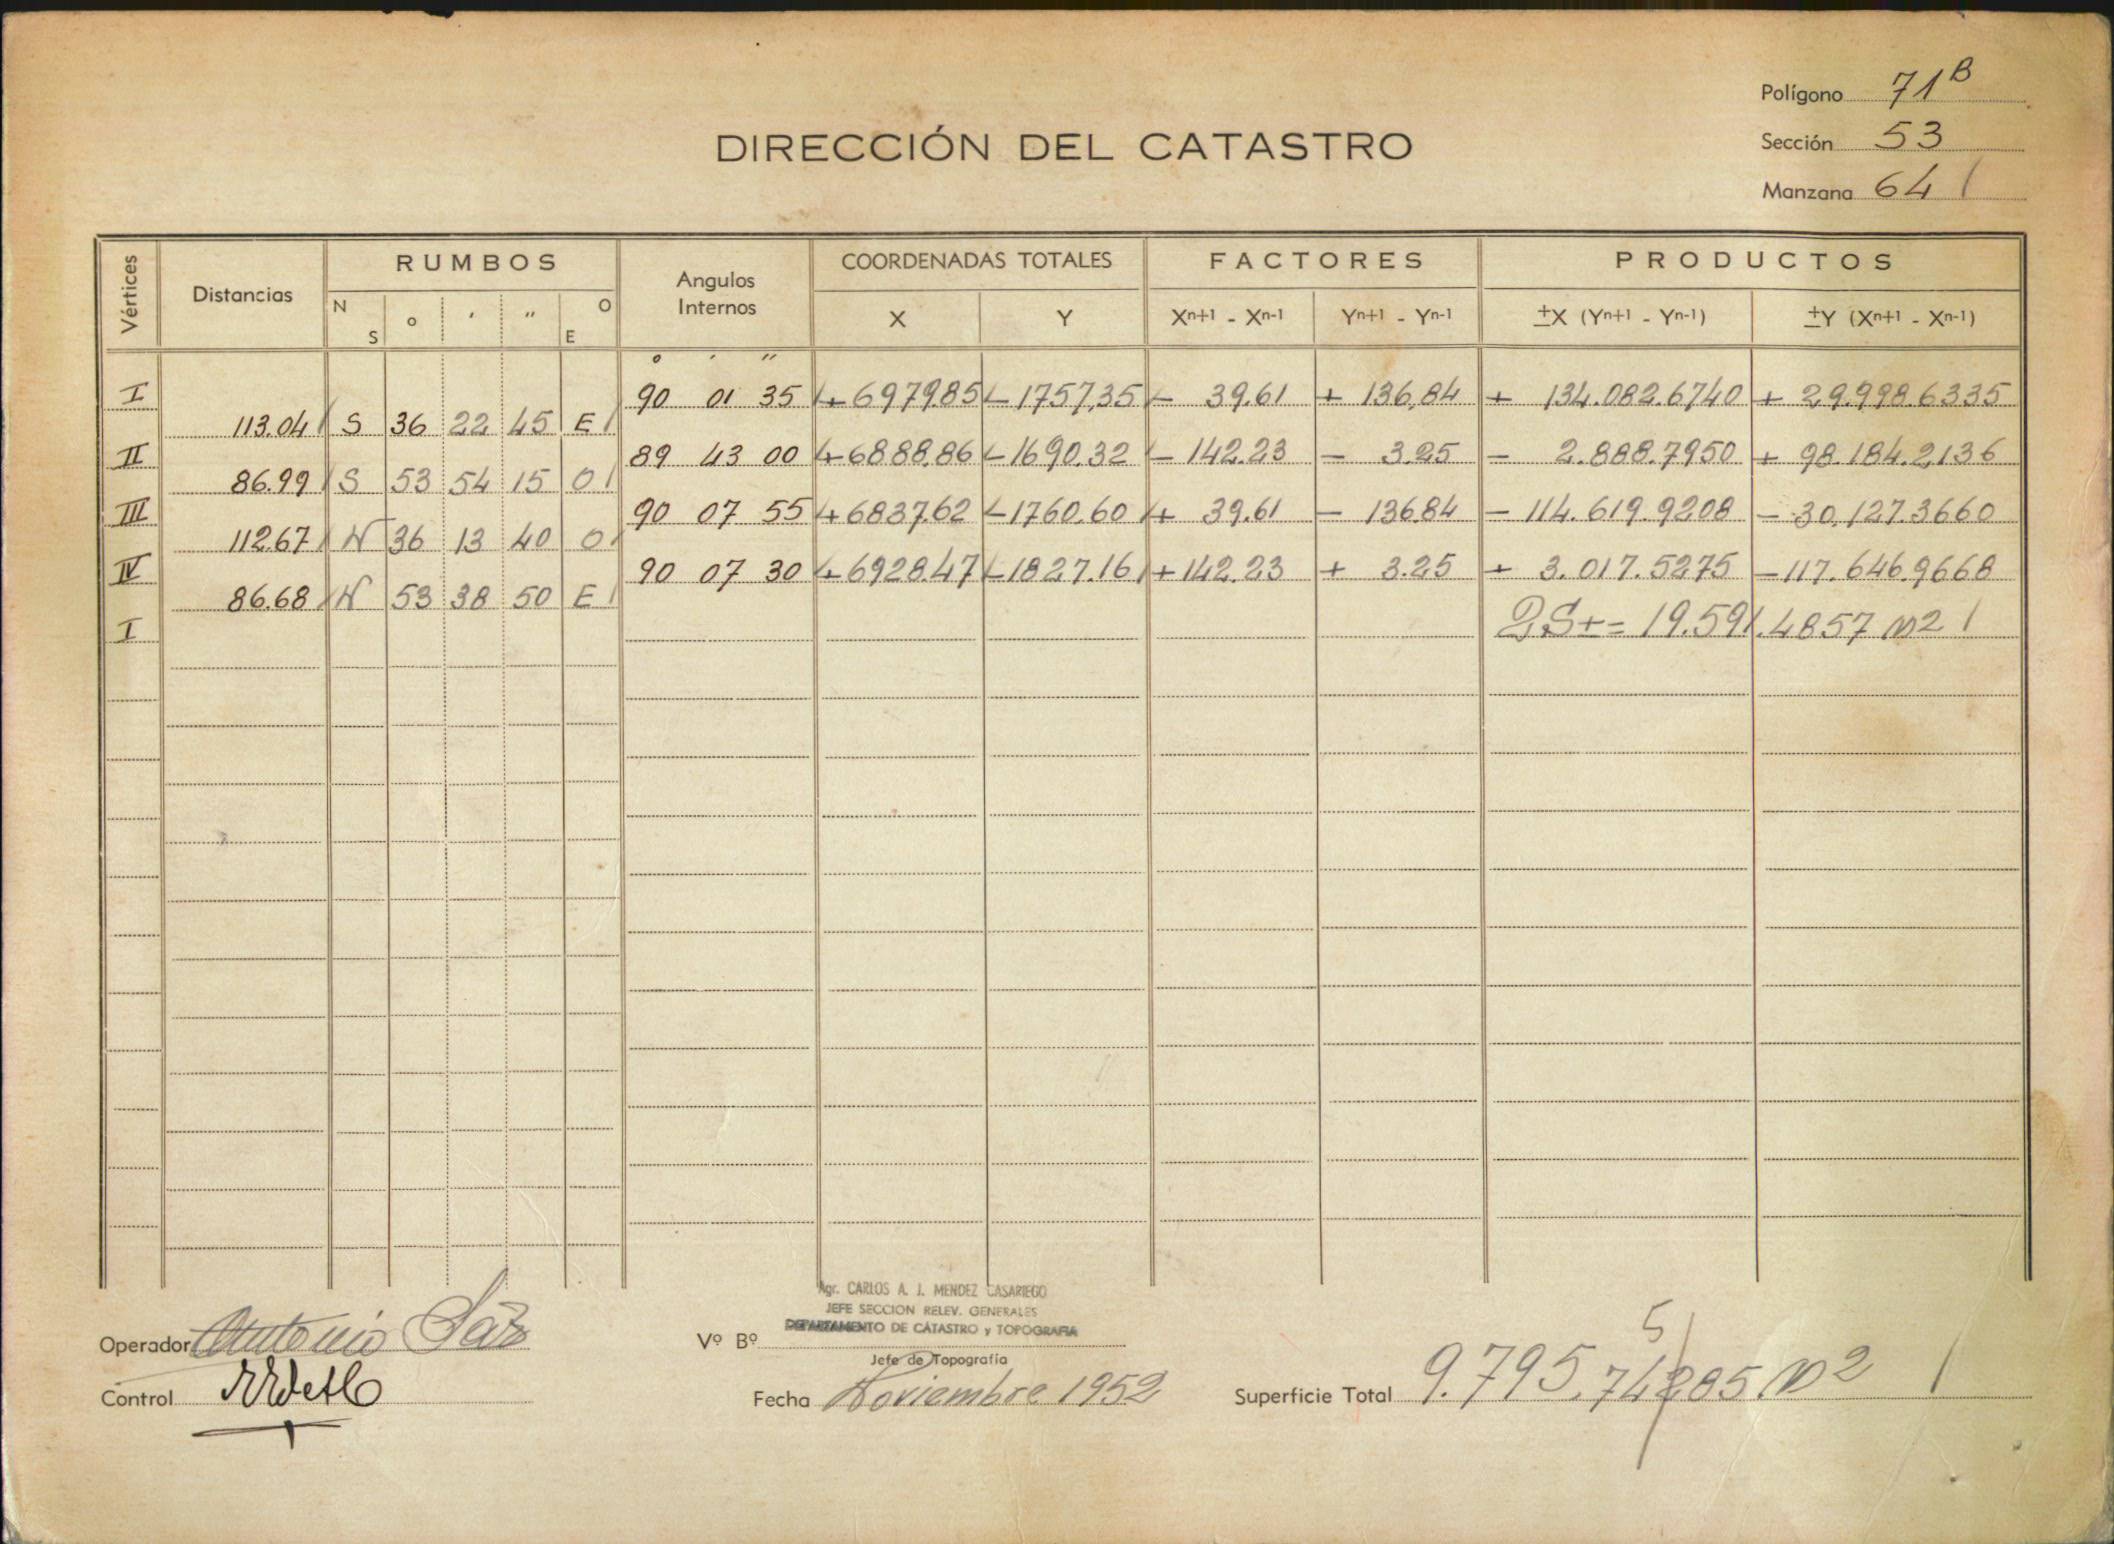 Polígono 71B
DIRECCIÓN DEL CATASTRO
Sección 53
Manzana 64 /
Vértices Distancias RUMBOS Angulos Internos COORDENADAS TOTALES FACTORES PRODUCTOS
N S ° ′ ″ O E X Y Xn+1 - Xn-1 Yn+1 - Yn-1 ±X (Yn+1 - Yn-1) ±Y (Xn+1 - Xn-1)
° ′ ″
I 90 01 35 + 6979.85 - 1757,35 - 39.61 + 136,84 + 134.082.6740 + 29.998.6335
113.04 S 36 22 45 E
II 89 43 00 + 6888.86 - 1690.32 - 142.23 - 3.25 - 2.888.7950 + 98.184.2136
86.99 S 53 54 15 O
III 90 07 55 + 6837.62 - 1760.60 + 39.61 - 136.84 - 114.619.9208 - 30.127.3660
112.67 N 36 13 40 O
IV 90 07 30 + 6928.47 - 1827.16 + 142.23 + 3.25 + 3.017.5275 - 117.646.9668
86.68 N 53 38 50 E
I 2S± = 19.591.4857 m2 /
Agr. CARLOS A. J. MENDEZ CASARIEGO
JEFE SECCION RELEV. GENERALES
DEPARTAMENTO DE CATASTRO y TOPOGRAFIA
Operador Antonio
Vº Bº
Jefe de Topografía
Control
Fecha Noviembre 1952
5
Superficie Total 9.795.74285 m2 /